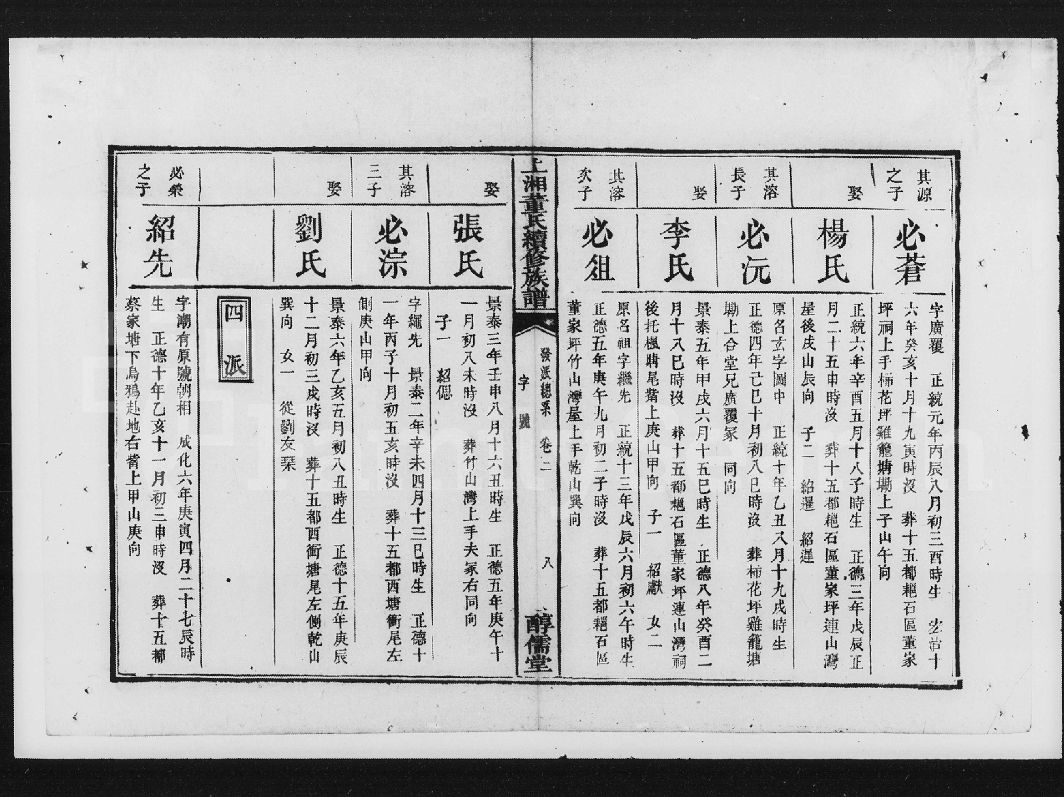 其源
之子
必蒼
字廣覆　正統元年丙辰八月初三酉時生　宏治十
六年癸亥十月十九寅時沒　葬十五都䅉石區董家
坪祠上手柿花坪雞籠塘塝上子山午向
娶
楊氏
正統六年辛酉五月十八子時生　正德三年戊辰正
月二十五申時沒　葬十五都䅉石區董家坪連山灣
屋後戌山辰向　子二　紹暹　紹運
其溶
長子
必沅
原名玄字國中　正統十年乙丑八月十九戌時生
正德四年己巳十月初八巳時沒　葬柿花坪雞籠塘
塝上合堂兄廣覆冢　同向
娶
李氏
景泰五年甲戌六月十五巳時生　正德八年癸酉二
月十八巳時沒　葬十五都䅉石區董家坪連山灣祠
後托楓聘尾嘴上庚山甲向　子一　紹獻　女二
其溶
次子
必俎
原名祖字繼先　正統十三年戊辰六月初六午時生
正德五年庚午九月初二子時沒　葬十五都䅉石區
董家坪竹山灣屋上手乾山巽向
上湘董氏續修族譜
發派總系　卷二
字號
八
醇儒堂
娶
張氏
景泰三年壬申八月十六丑時生　正德五年庚午十
一月初八未時沒　葬竹山灣上手夫冢右同向
子一　紹偲
其溶
三子
必淙
字繩先　景泰二年辛未四月十三巳時生　正德十
一年丙子十月初五亥時沒　葬十五都西塘衝尾左
側庚山甲向
娶
劉氏
景泰六年乙亥五月初八丑時生　正德十五年庚辰
十二月初三戌時沒　葬十五都西衝塘尾左側乾山
巽向　女一　從劉友琹
四派
必榮
之子
紹先
字潮有原號朝相　成化六年庚寅四月二十七辰時
生　正德十年乙亥十一月初三申時沒　葬十五都
蔡家塘下烏鴉赴地右嘴上甲山庚向